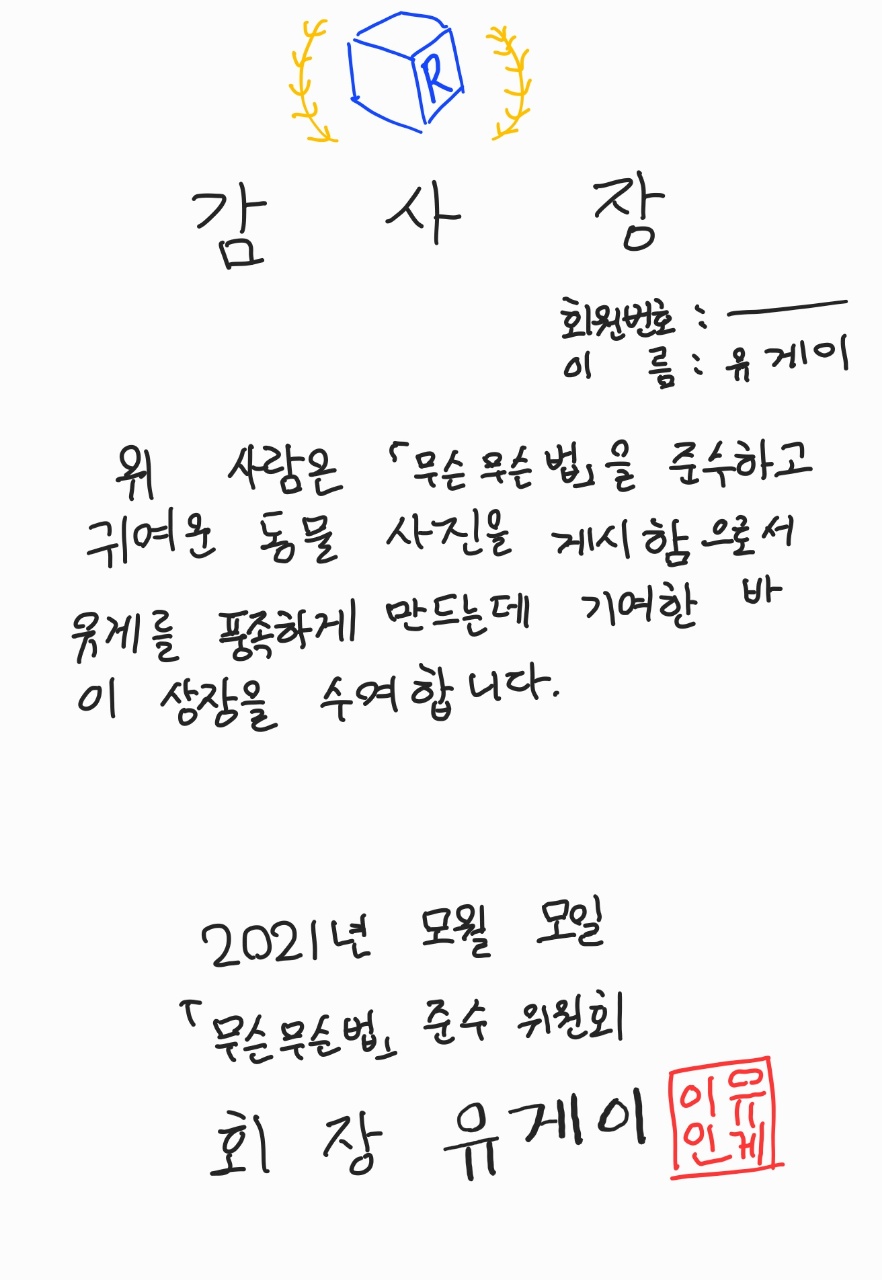 R
감 사 장
회원번호 :
이 름 : 유게이
위 사람은 「무슨무슨법」을 준수하고
귀여운 동물 사진을 게시함으로서
유게를 풍족하게 만드는데 기여한 바
이 상장을 수여합니다.
2021년 모월 모일
「무슨무슨법」 준수 위원회
회 장 유게이
유게
이인